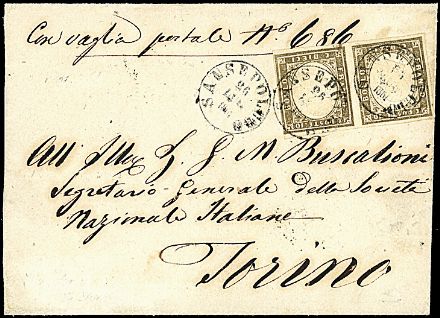 Con vaglia postale N.º 686
SANSEPOLCRO
All' Illmo S. G. M. Buscalioni
Segretario Generale della Società
Nazionale Italiana
Torino